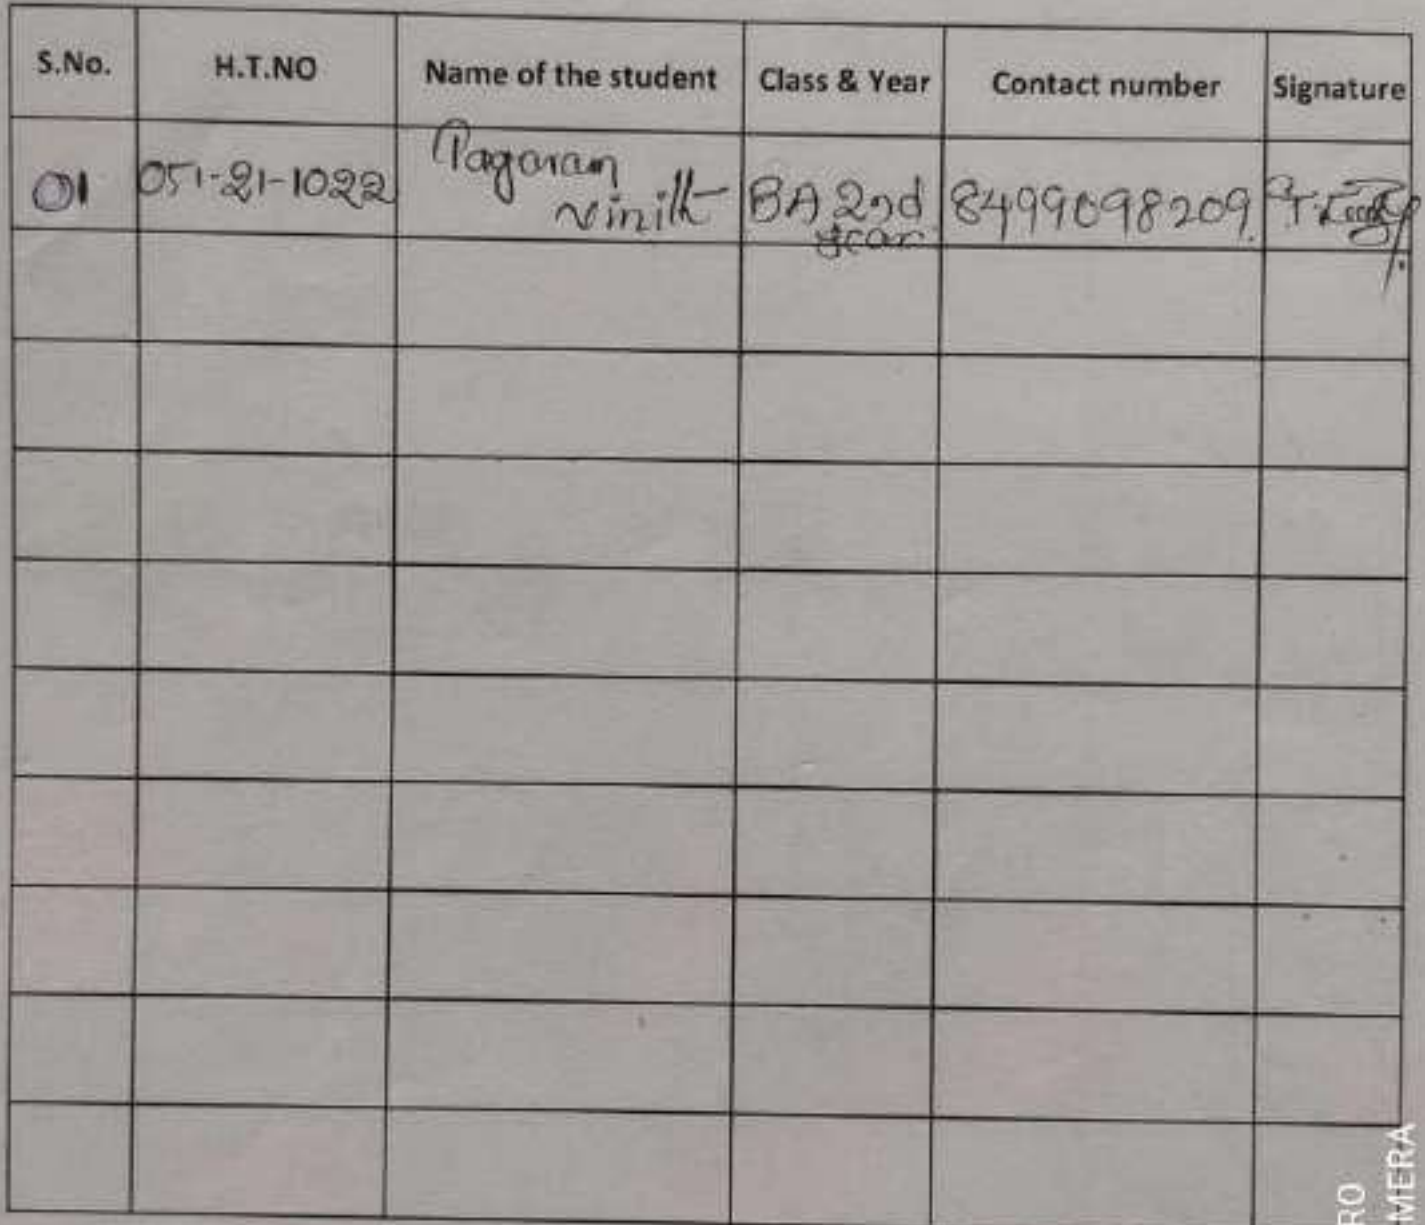 S.No. H.T.NO Name of the student Class & Year Contact number Signature
01 051-21-1022 Pagaran vinith BA 2nd year 8499098209
RO
MERA